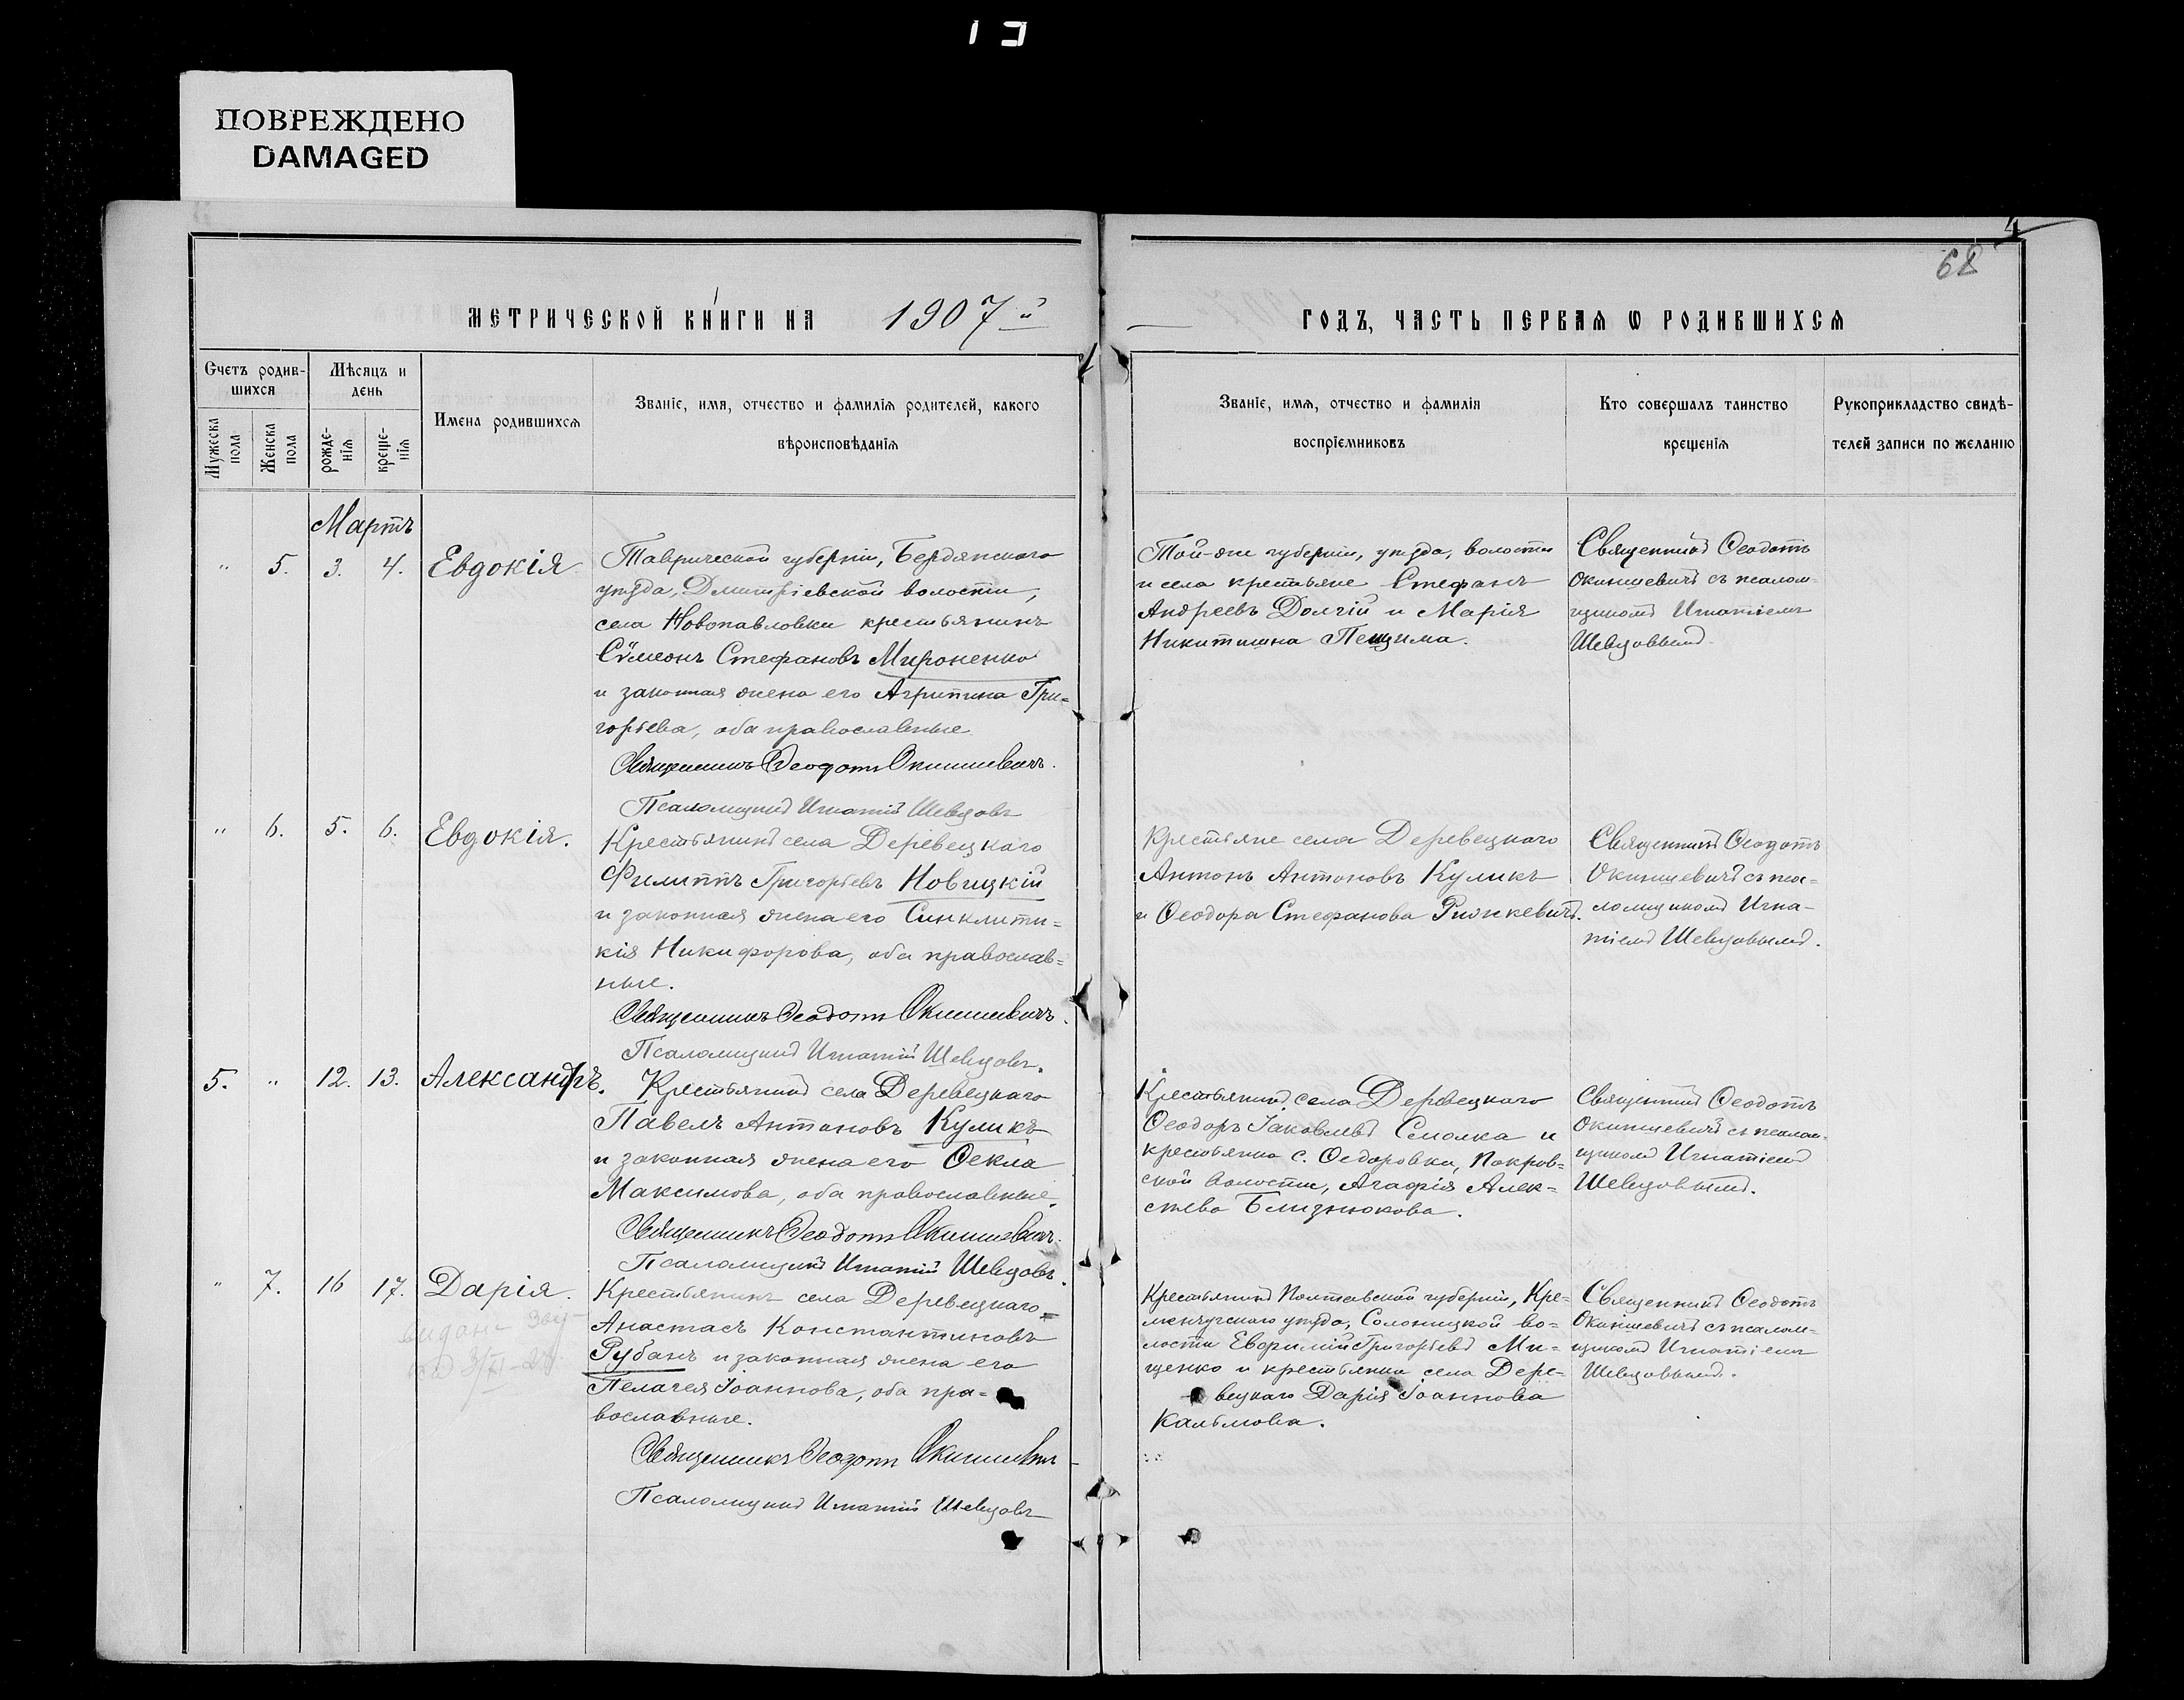 ПОВРЕЖДЕНО
DAMAGED
4
68
МЕТРИЧЕСКОЙ КНИГИ НА 1907й
ГОДЪ, ЧАСТЬ ПЕРВАЯ Ѡ РОДИВШИХСЯ
Счетъ родив-
шихся
Мужеска пола
Женска пола
Мѣсяцъ и
день
рожде-
нія
креще-
нія
Имена родившихся
Званіе, имя, отчество и фамилія родителей, какого
вѣроисповѣданія
Званіе, имя, отчество и фамилія
воспріемниковъ
Кто совершалъ таинство
крещенія
Рукоприкладство свидѣ-
телей записи по желанію
Мартъ
" 5. 3. 4. Евдокія
Таврической губерніи, Бердянскаго
уѣзда, Дмитріевской волости,
села Новопавловки крестьянинъ
Сѵмеонъ Стефановъ Мироненко
и законная жена его Агрипина Гри-
горьева, оба православные
Священникъ Ѳеодотъ Окиншевичъ.
Псаломщикъ Игнатій Шевцовъ
Той-же губерніи, уѣзда, волости
и села крестьяне Стефанъ
Андреевъ Долгій и Марія
Никитина
Священникъ Ѳеодотъ
Окиншевичъ съ псалом-
щикомъ Игнатіемъ
Шевцовымъ.
" 6. 5. 6. Евдокія.
Крестьянинъ села Деревецкаго
Филиппъ Григорьевъ Новицкій
и законная жена его Синклити-
кія Никифорова, оба православ-
ные.
Священникъ Ѳеодотъ Окиншевичъ.
Псаломщикъ Игнатій Шевцовъ.
Крестьяне села Деревецкаго
Антонъ Антоновъ Куликъ
и Ѳеодора Стефанова
Священникъ Ѳеодотъ
Окиншевичъ съ пса-
ломщикомъ Игна-
тіемъ Шевцовымъ.
5. " 12. 13. Александръ.
Крестьянинъ села Деревецкаго
Павелъ Антоновъ Куликъ
и законная жена его Ѳекла
Максимова, оба православные.
Священникъ Ѳеодотъ Окиншевичъ.
Псаломщикъ Игнатій Шевцовъ.
Крестьянинъ села Деревецкаго
Ѳеодоръ Іаковлевъ Смолка и
крестьянка с. Ѳедоровки, Покров-
ской волости, Агафія Алек-
сѣева Близнюкова.
Священникъ Ѳеодотъ
Окиншевичъ съ псалом-
щикомъ Игнатіемъ
Шевцовымъ.
" 7. 16 17. Дарія.
Крестьянинъ села Деревецкаго
Анастасъ Константиновъ
Рубанъ и законная жена его
Пелагея Іоаннова, оба пра-
вославные.
Священникъ Ѳеодотъ Окиншевичъ
Псаломщикъ Игнатій Шевцовъ
Крестьянинъ Полтавской губерніи, Кре-
менчугскаго уѣзда, Солоницкой во-
лости Евфимій Григорьевъ Ми-
щенко и крестьянка села Дере-
вецкаго Дарія Іоаннова
Калымова.
Священникъ Ѳеодотъ
Окиншевичъ съ псалом-
щикомъ Игнатіемъ
Шевцовымъ.